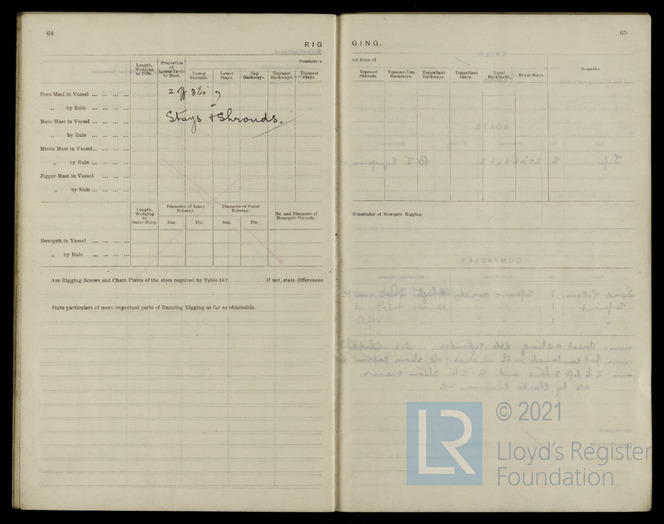 64
65
RIGGING.
Numbers o
nd Size of
Length, Wedging to Pole.
Proportion of
Lower Shrouds.
Lower Stays.
Cap Backstays.
Topmast Backstays.
Topmast Stays.
Topmast Shrouds.
Topmast Cap Backstays.
Topgallant Backstays.
Topgallant Stays.
Royal Backstays.
Royal Stays.
Remarks
Fore Mast in Vessel
" by Rule
Main Mast in Vessel
" by Rule
Mizen Mast in Vessel
" by Rule
Jigger Mast in Vessel
" by Rule
2 off 3¼"
Stays & Shrouds.
Length, Wedging to Outer Hoop.
Diameter of Inner Bobstay.
Diameter of Outer Bobstay.
No. and Diameter of Bowsprit Shrouds.
Bar. Pin. Bar. Pin.
Remainder of Bowsprit Rigging
Bowsprit in Vessel
" by Rule
Are Rigging Screws and Chain Plates of the sizes required by Table 16? If not, state differences
State particulars of more important parts of Running Rigging as far as obtainable.
© 2021
LR
Lloyd's Register
Foundation